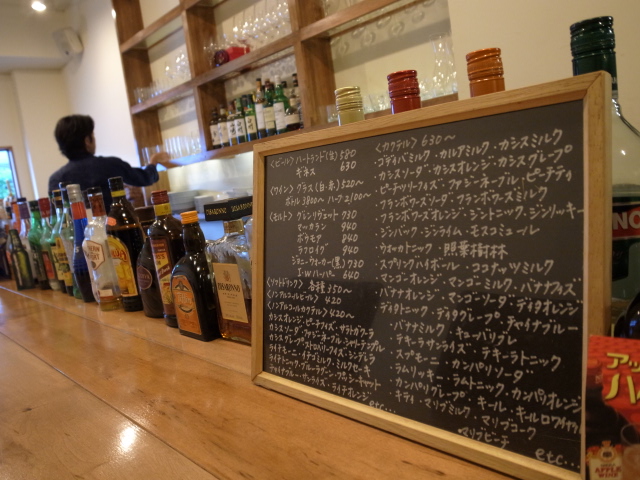 〈ビール〉ハートランド(生) 580
ギネス 630
〈ワイン〉グラス(白・赤) 520〜
ボトル 3800〜 ハーフ 2100〜
〈モルト〉グレンリヴェット 730
マッカラン 940
ボウモア 940
ラフロイグ 940
ジョニーウォーカー(黒) 730
I.W.ハーパー 640
〈ソフトドリンク〉各種 350〜
〈ノンアルコールビール〉420
〈ノンアルコールカクテル〉420〜
カシスオレンジ・ピーチフィズ・サラトガクーラ
カシスソーダ・ファジーネーブル・シャーリーテンプル
カシスグレープ・ストロベリーフィズ・シンデレラ
ライチモーニ・イチゴミルク・ミルクセーキ
ライチトニック・ブルーラグーン・プッシーキャット
チャイナブルー・サンライズ・ライチオレンジ
etc...
〈カクテル〉630〜
・ゴディバミルク・カルアミルク・カシスミルク
・カシスソーダ・カシスオレンジ・カシスグレープ
・ピーチソーフィズ・ファジーネーブル・ピーチティ
・フランボワーズソーダ・フランボワーズミルク
・フランボワーズオレンジ・ジントニック・ジンリッキー
・ジンバック・ジンライム・モスコミュール
・ウォッカトニック・照葉樹林
・スプリングハイボール・ココナッツミルク
・マンゴーオレンジ・マンゴーミルク・バナナフィズ
・バナナオレンジ・マンゴーソーダ・ディタオレンジ
・ディタトニック・ディタグレープ・チャイナブルー
・バナナミルク・キューバリブレ
・テキーラサンライズ・テキーラトニック
・スプモーニ・カンパリソーダ
・ラムリッキー・ラムトニック・カンパリオレンジ
・カンパリグレープ・キール・キールロワイヤル
・キティ・マリブミルク・マリブコーク
マリブピーチ
etc...
アッ
ハ